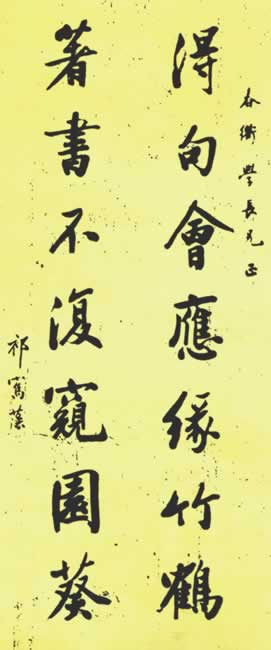 春學長兄正
得句會應緣竹鶴
著書不復窺園葵
祁寯藻